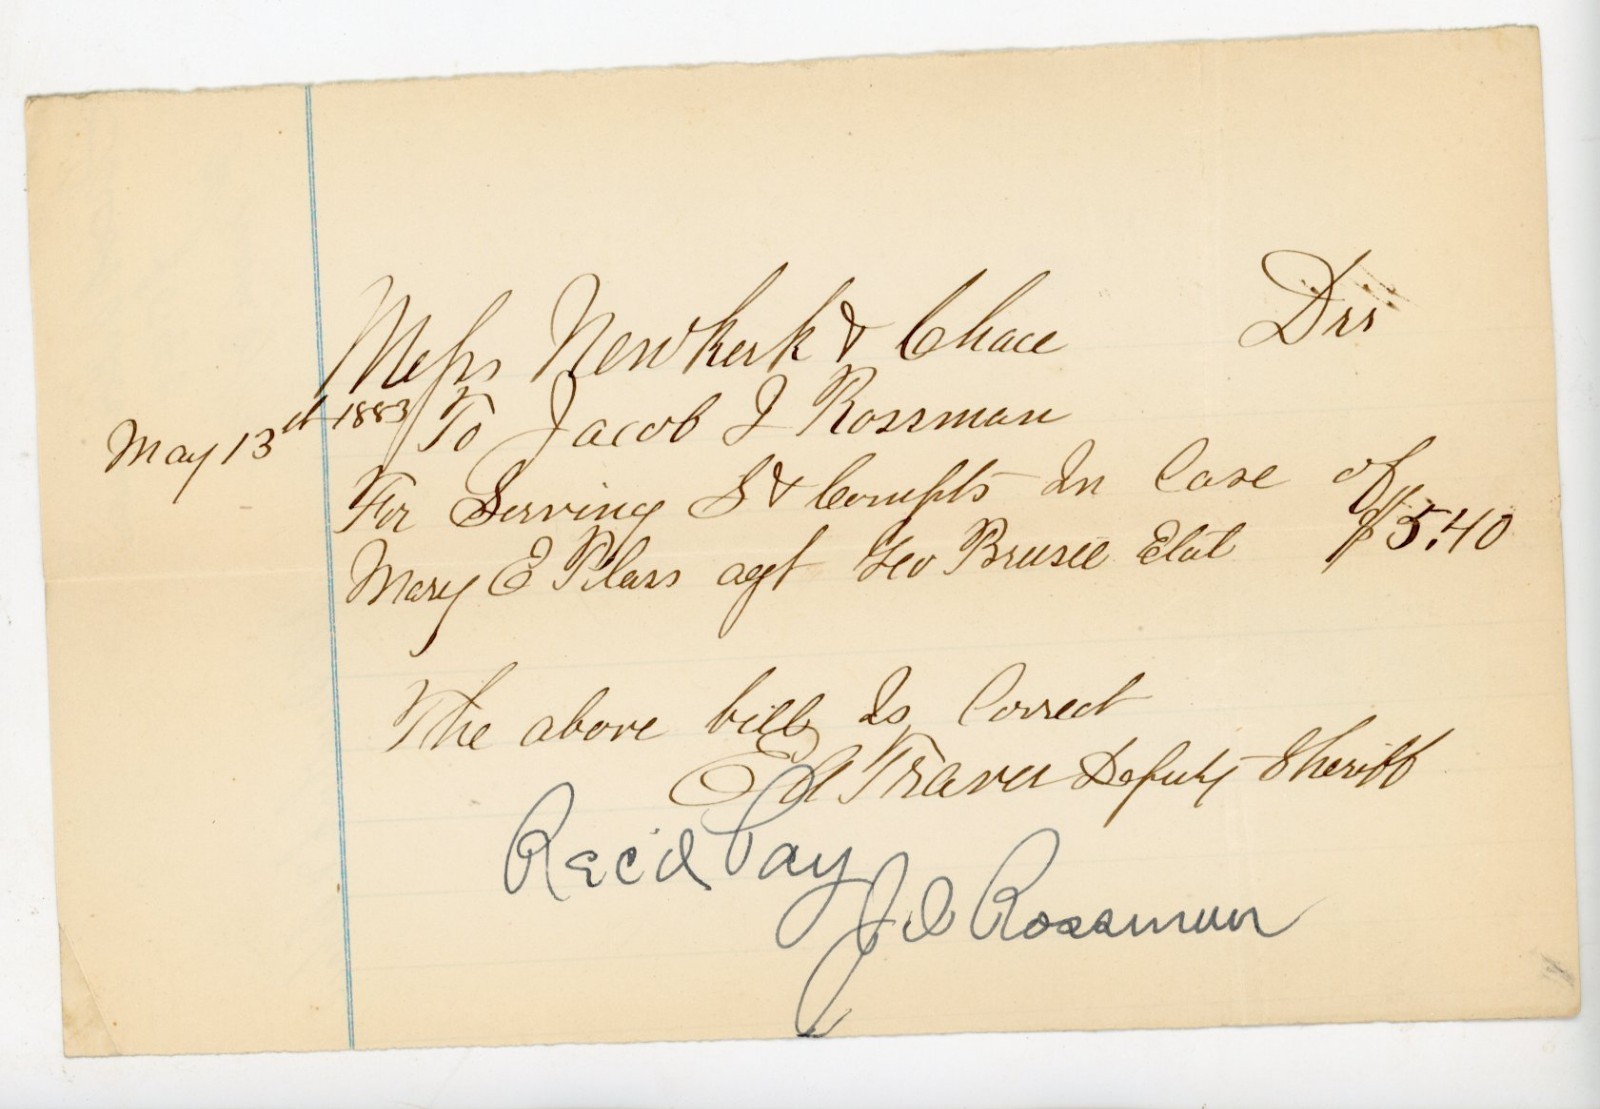 Messrs Newkerk & Chace Drs
May 13th 1883 To Jacob J Rossman
For Serving S & Complts In Case of
Mary E Plass agt Geo Brusee Etal $5.40
The above bill Is Correct
Ed Traver Deputy Sheriff
Rec'd Pay
J J Rossman